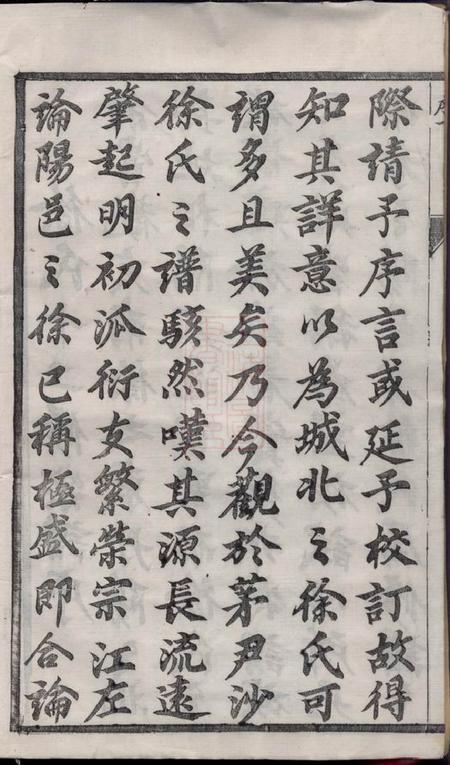 際請予序言或延予校訂故得
知其詳意以為城北之徐氏可
謂多且美矣乃今觀於茅尹沙
徐氏之譜駭然嘆其源長流遠
肇起明初派衍支繁榮宗江左
論陽邑之徐已稱極盛即合論